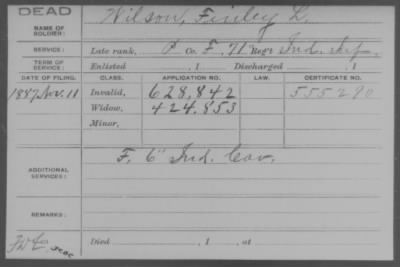 DEAD
NAME OF SOLDIER: Wilson, Finley L.
SERVICE: Late rank, P Co. F, 71 Reg't Ind. Inf.
TERM OF SERVICE: Enlisted , 1 Discharged , 1
DATE OF FILING. CLASS. APPLICATION NO. LAW. CERTIFICATE NO.
1887 Nov. 11 Invalid, 628,842 555290
Widow, 424,853
Minor,
ADDITIONAL SERVICES: F, 6" Ind. Cav.
REMARKS:
Died , 1 , at